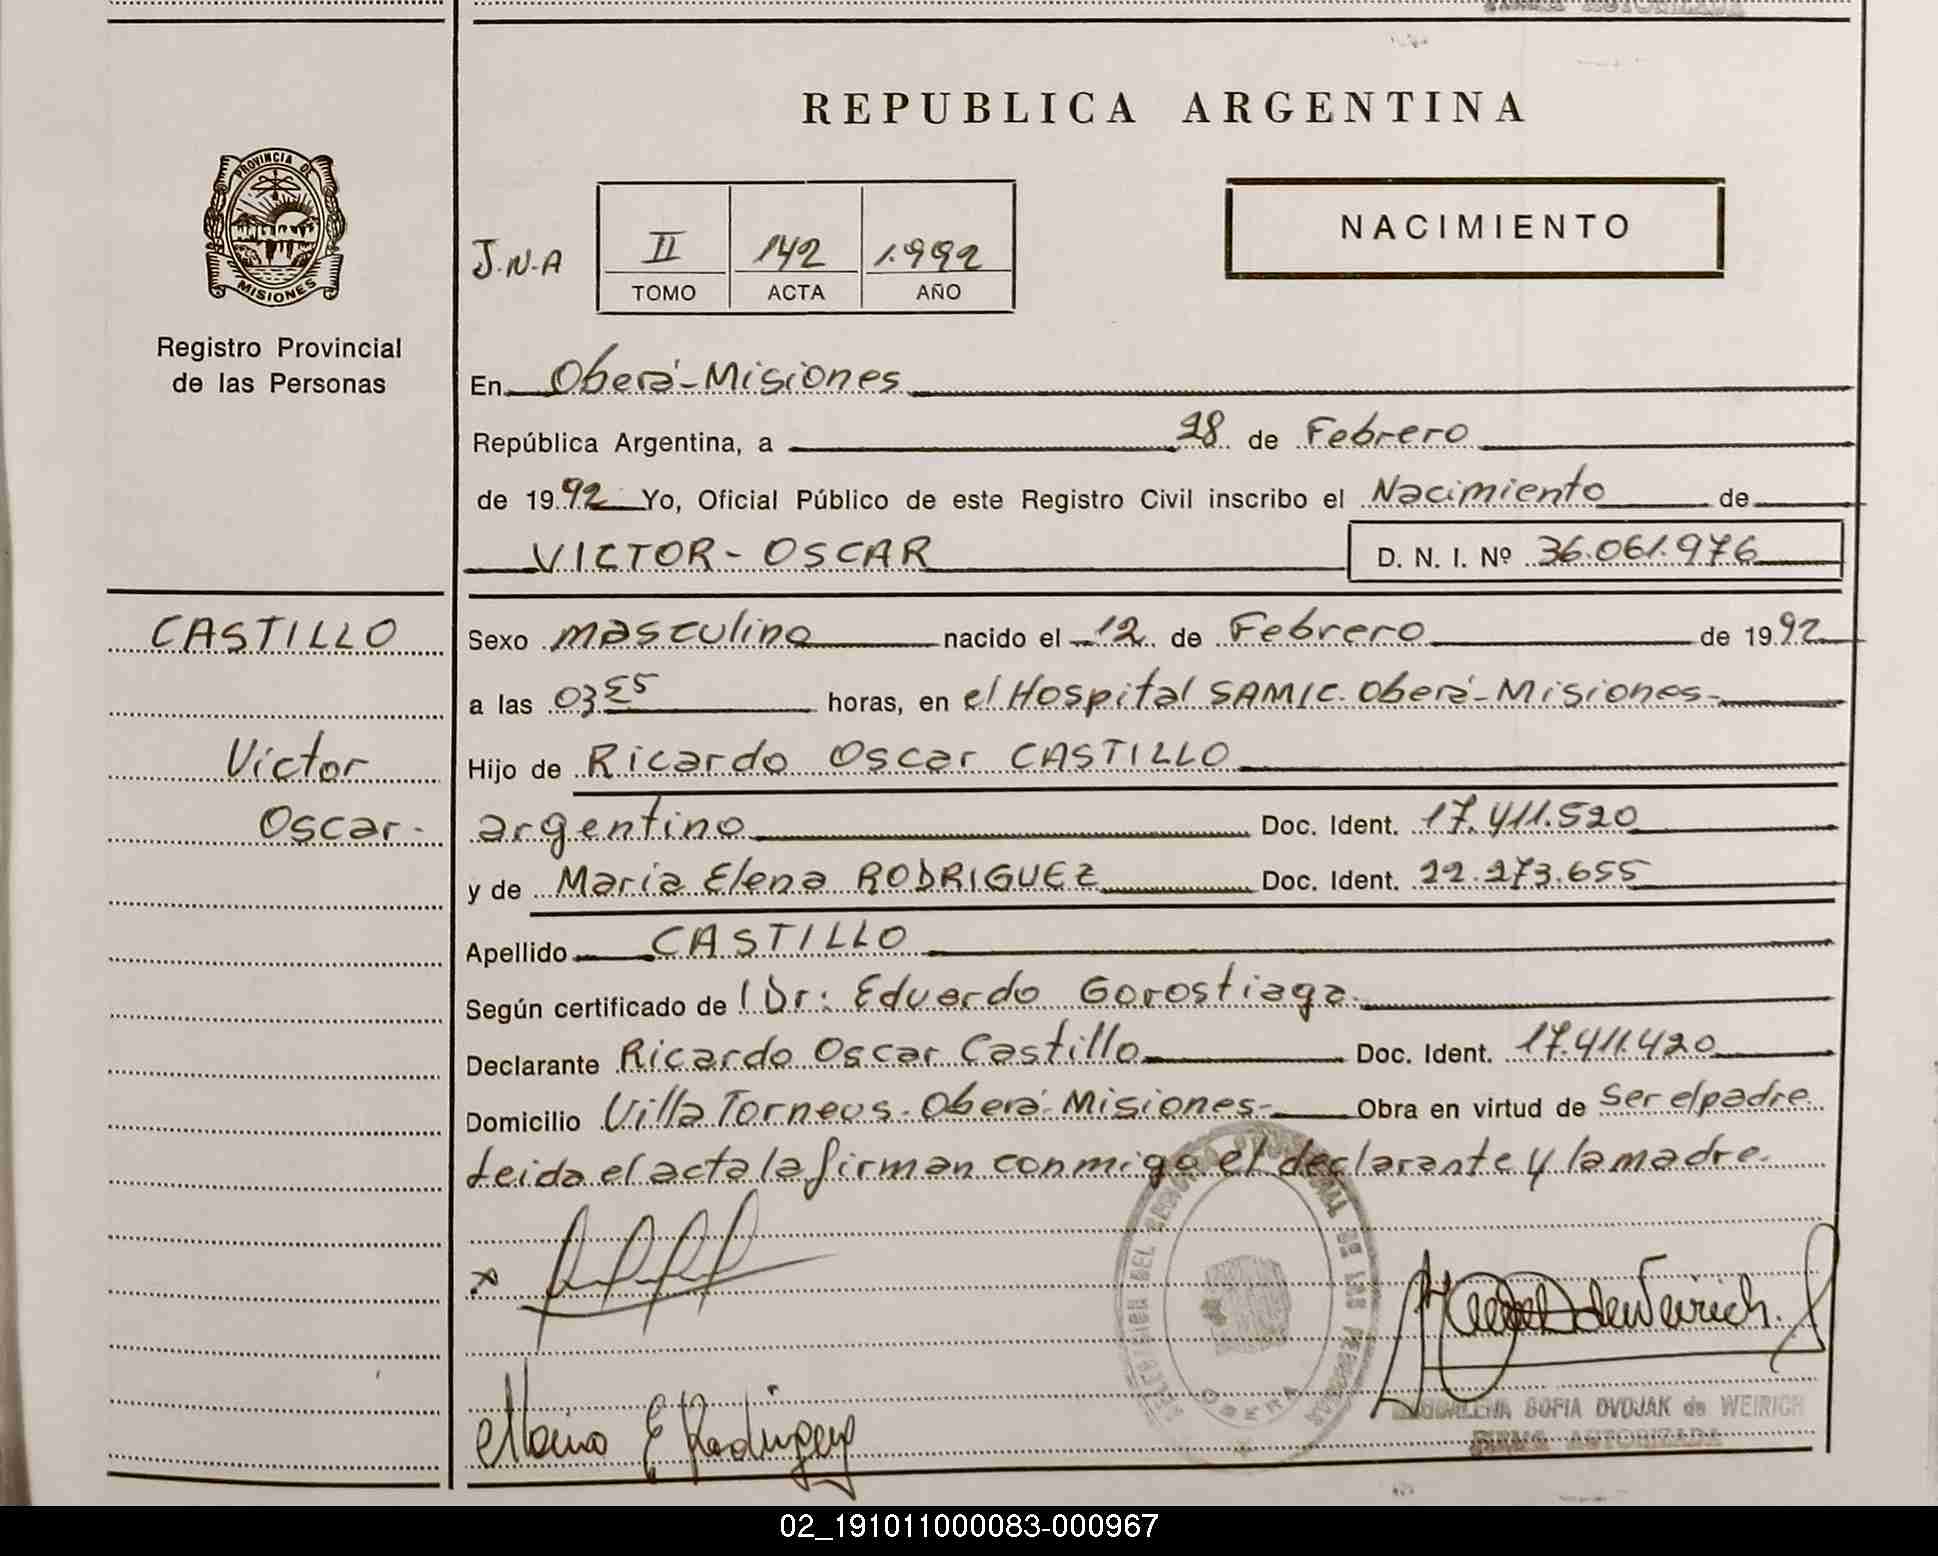 REPUBLICA ARGENTINA
PROVINCIA DE
MISIONES
Registro Provincial
de las Personas
J.N.A
II 142 1.992
TOMO ACTA AÑO
NACIMIENTO
En Oberá-Misiones
República Argentina, a 28 de Febrero
de 1992 Yo, Oficial Público de este Registro Civil inscribo el Nacimiento de
VICTOR-OSCAR D. N. I. Nº 36.061.976
CASTILLO
Victor
Oscar.-
Sexo masculino nacido el 12 de Febrero de 1992
a las 03 55 horas, en el Hospital SAMIC. Oberá-Misiones-
Hijo de Ricardo Oscar CASTILLO
argentino Doc. Ident. 17.411.520
y de María Elena RODRIGUEZ Doc. Ident. 22.273.655
Apellido CASTILLO
Según certificado de l Dr: Eduardo Gorostiaga.
Declarante Ricardo Oscar Castillo Doc. Ident. 17.411.420
Domicilio Villa Torneus. Oberá-Misiones- Obra en virtud de Ser el padre
Leida el acta la firman conmigo el declarante y la madre.
DEL REGISTRO PROVINCIAL DE LAS PERSONAS
OBERA
de Weirich.
María E Rodriguez
MAGDALENA SOFIA DVOJAK de WEIRICH
FIRMA AUTORIZADA
02_191011000083-000967